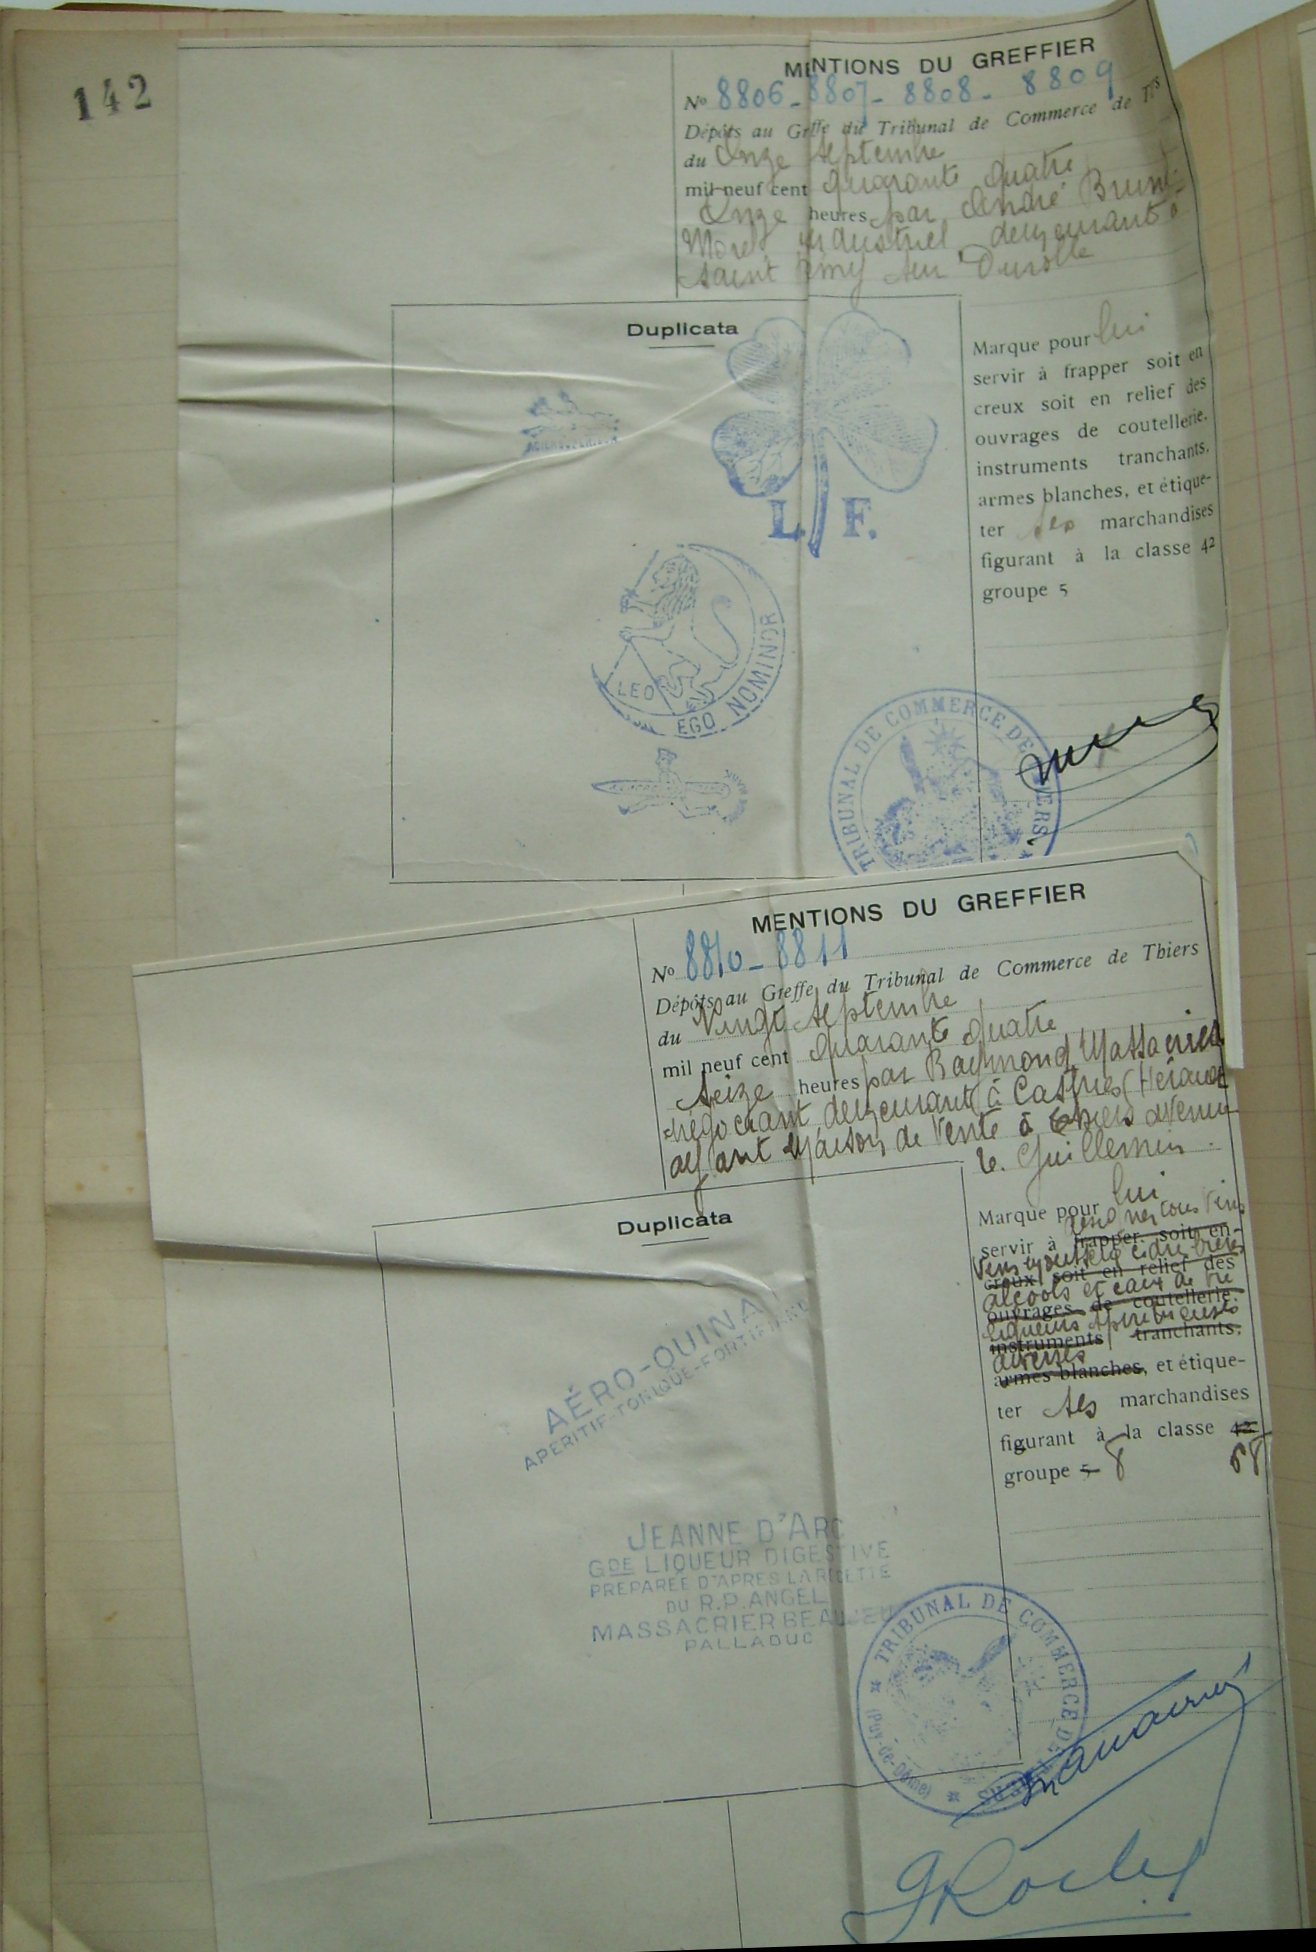 142
MENTIONS DU GREFFIER
No 8806 - 8807 - 8808 - 8809
Dépôts au Greffe du Tribunal de Commerce de
du Onze Septembre
mil neuf cent quarante quatre
Onze heures par André Brunel
Morel industriel demeurant à
Saint Rémy sur Durolle
Duplicata
L. F.
LEO
EGO NOMINOR
TRIBUNAL DE COMMERCE DE THIERS
Marque pour lui
servir à frapper soit en
creux soit en relief des
ouvrages de coutellerie,
instruments tranchants,
armes blanches, et étique-
ter ses marchandises
figurant à la classe 42
groupe 5
MENTIONS DU GREFFIER
No 8810 - 8811
Dépôts au Greffe du Tribunal de Commerce de Thiers
du Vingt Septembre
mil neuf cent quarante quatre
Seize heures par Raymond Massacrier
négociant demeurant à Castries (Hérault
ayant Maison de Vente à Thiers Avenue
E. Guillemin
Duplicata
AÉRO-QUINA
APERITIF-TONIQUE-FORTIFIANT
JEANNE D'ARC
GDE LIQUEUR DIGESTIVE
PREPAREE D'APRES LA RECETTE
DU R.P. ANGEL
MASSACRIER BEAUJEU
PALLADUC
TRIBUNAL DE COMMERCE DE THIERS
(Puy-de-Dôme)
Marque pour lui
désigner tous vins
servir à frapper soit en
vins mousseux cidre bières
creux soit en relief des
alcools et eaux de vie
ouvrages de coutellerie,
liqueurs spiritueuses
instruments tranchants,
diverses
armes blanches, et étique-
ter ses marchandises
figurant à la classe 42
groupe 5 8 68